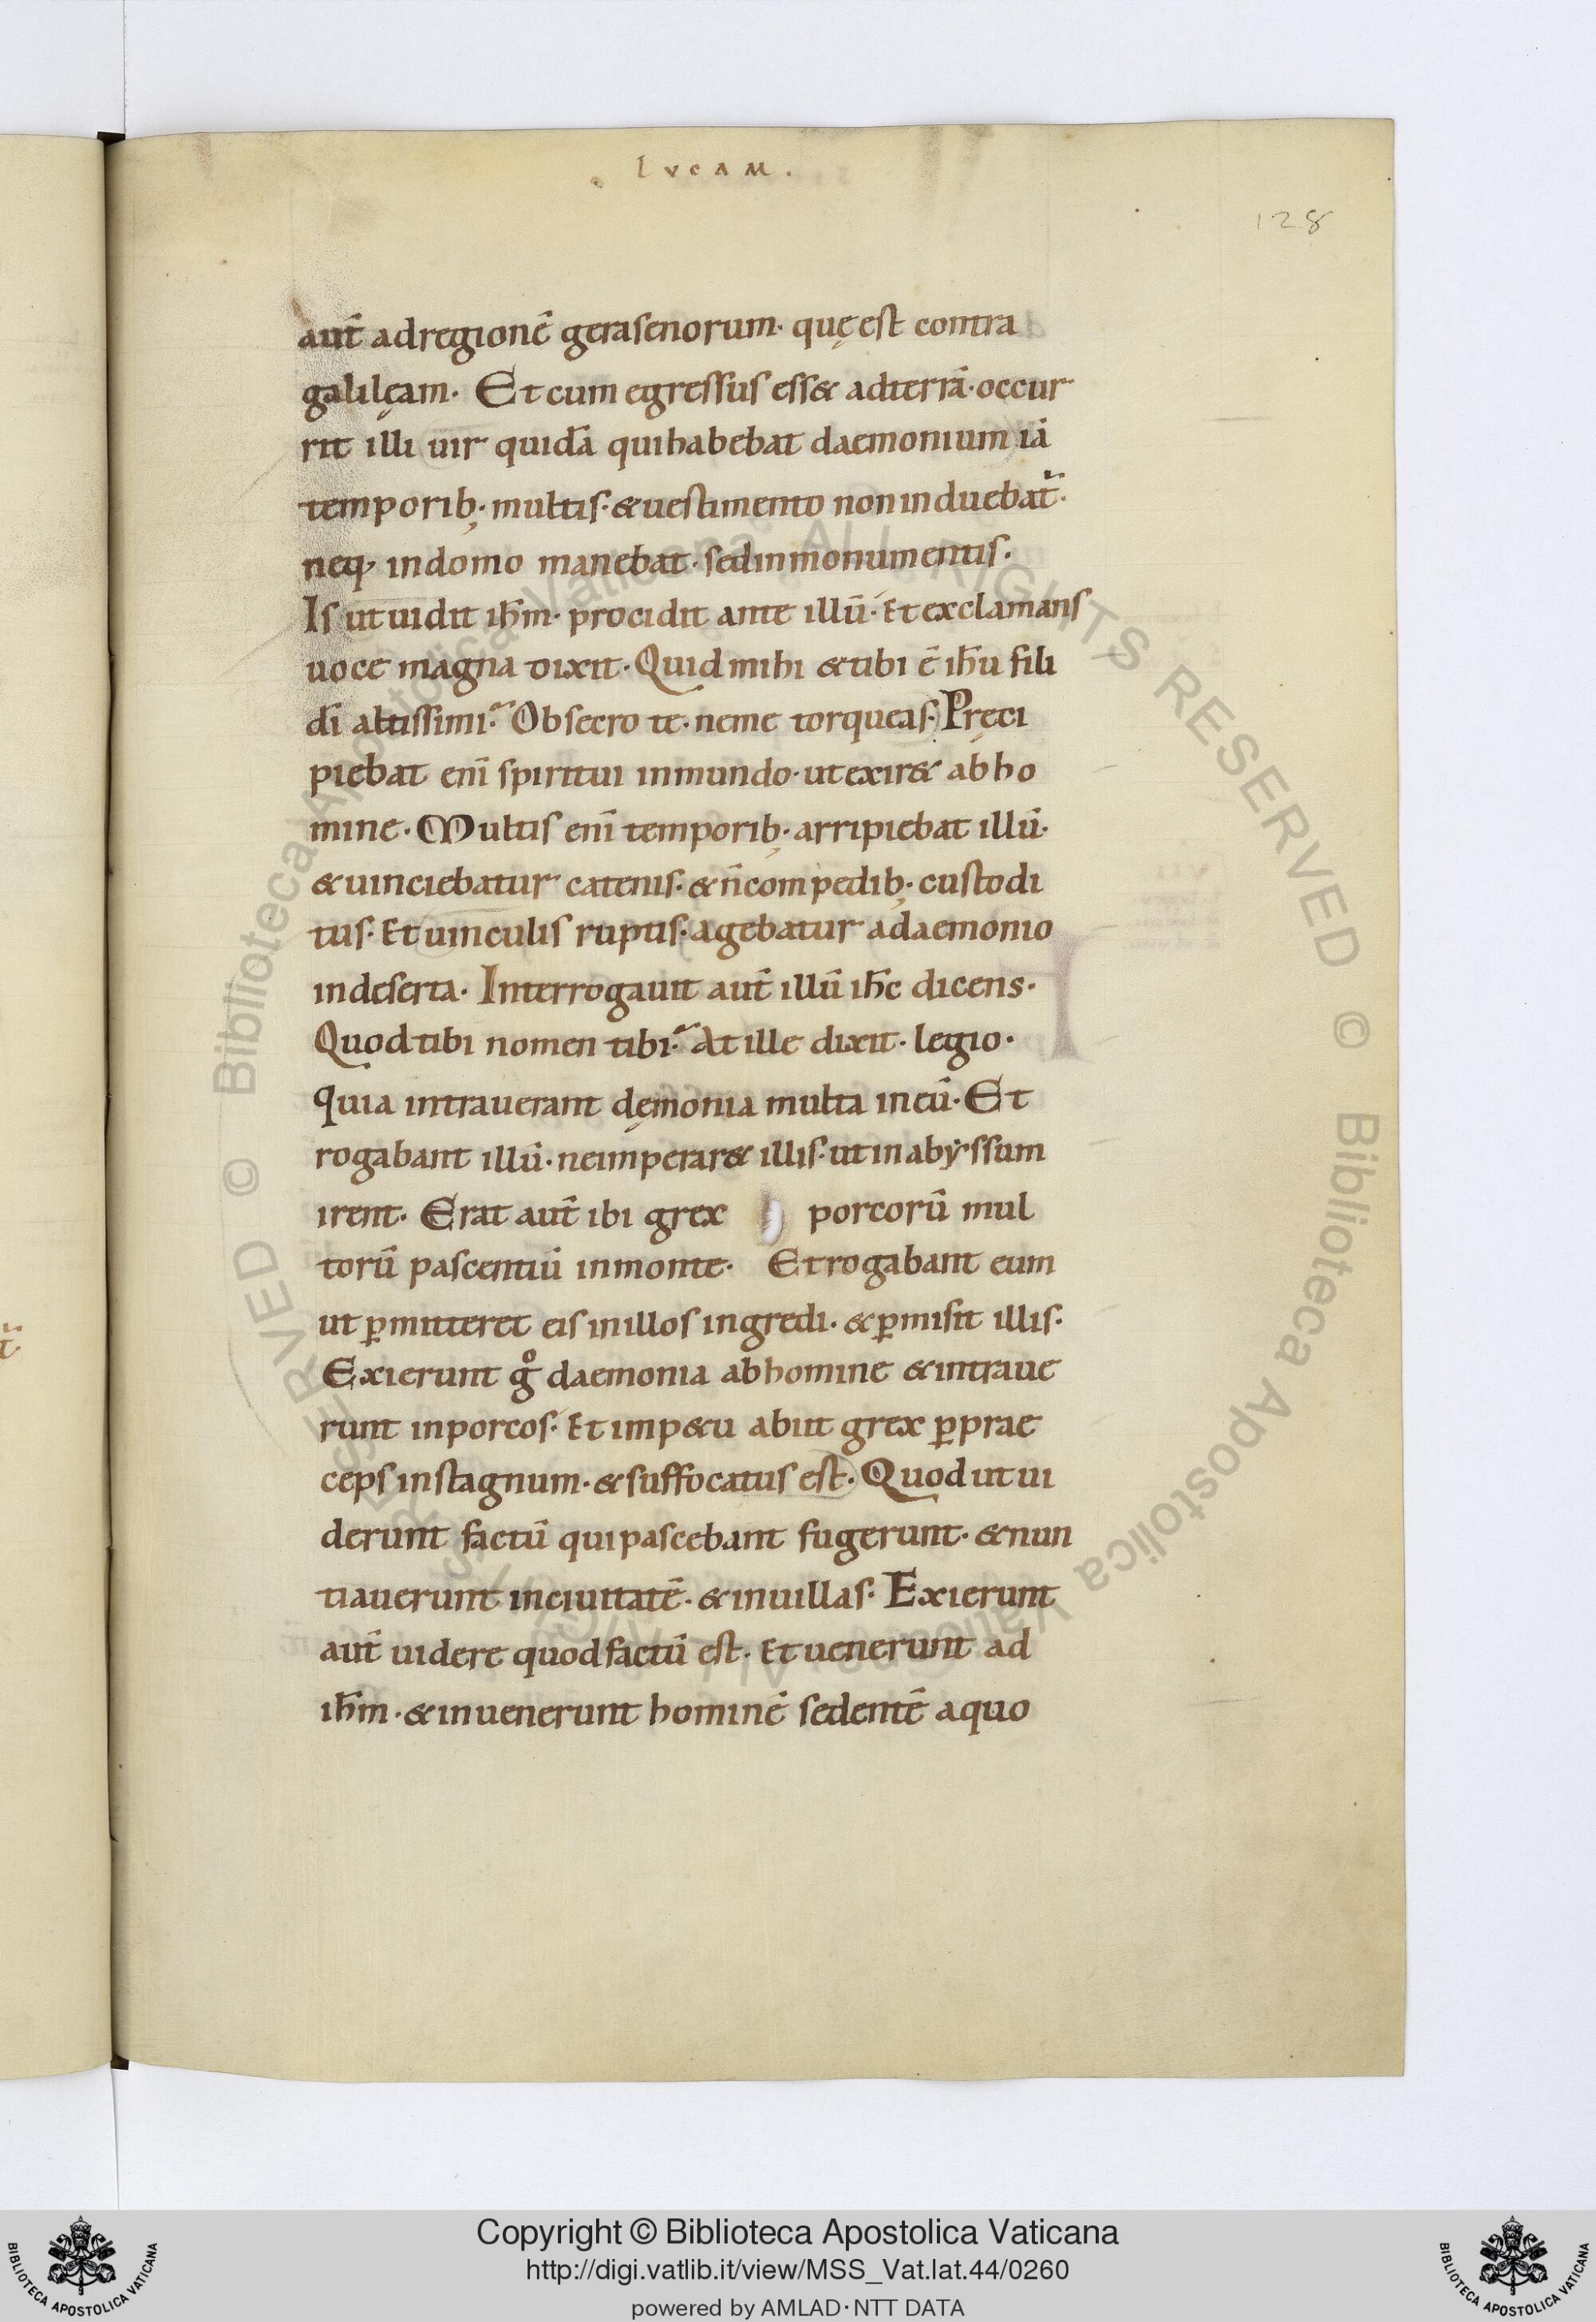 LVCAM.
128
aut̄ adregionē gerasenorum· quę est contra
galilęam· Et cum egressus ess& adterrā· occur
rit illi uir quidā quihabebat daemonium iā
temporib;· multis· &uestimento non induebat̄·
neq· indomo manebat· sedinmonumentis·
Is ut uidit ih̄m· procidit ante illū· Et exclamans
uoce magna dixit· Quid mihi &tibi ē ih̄u fili
dī altissimi· Obsecro te· neme torqueas· Pręci
piebat enī spiritui inmundo· ut exir& ab ho
mine· Multis enī temporib;· arripiebat illū·
&uinciebatur catenis· &n̄compedib;· custodi
tus· Et uinculis ruptis· agebatur adaemonio
indeserta· Interrogauit aut̄ illū ih̄c dicens·
Quod tibi nomen tibi· At ille dixit· legio·
Quia intrauerant dęmonia multa ineū· Et
rogabant illū· neimperar& illis· ut in abẏssum
irent· Erat aut̄ ibi grex porcorū mul
torū pascentiū inmonte· Et rogabant eum
ut p̄mitteret eis inillos ingredi· &p̄misit illis·
Exierunt g̊ daemonia abhomine &intraue
runt inporcos· Et imp&u abiit grex p̄prae
ceps instagnum· &suffocatus est· Quod ut ui
derunt factū qui pascebant fugerunt· &nun
tiauerunt inciuitatē· &inuillas· Exierunt
aut̄ uidere quod factū est· Et uenerunt ad
ih̄m· &inuenerunt hominē sedentē aquo
Copyright © Biblioteca Apostolica Vaticana
http://digi.vatlib.it/view/MSS_Vat.lat.44/0260
powered by AMLAD·NTT DATA